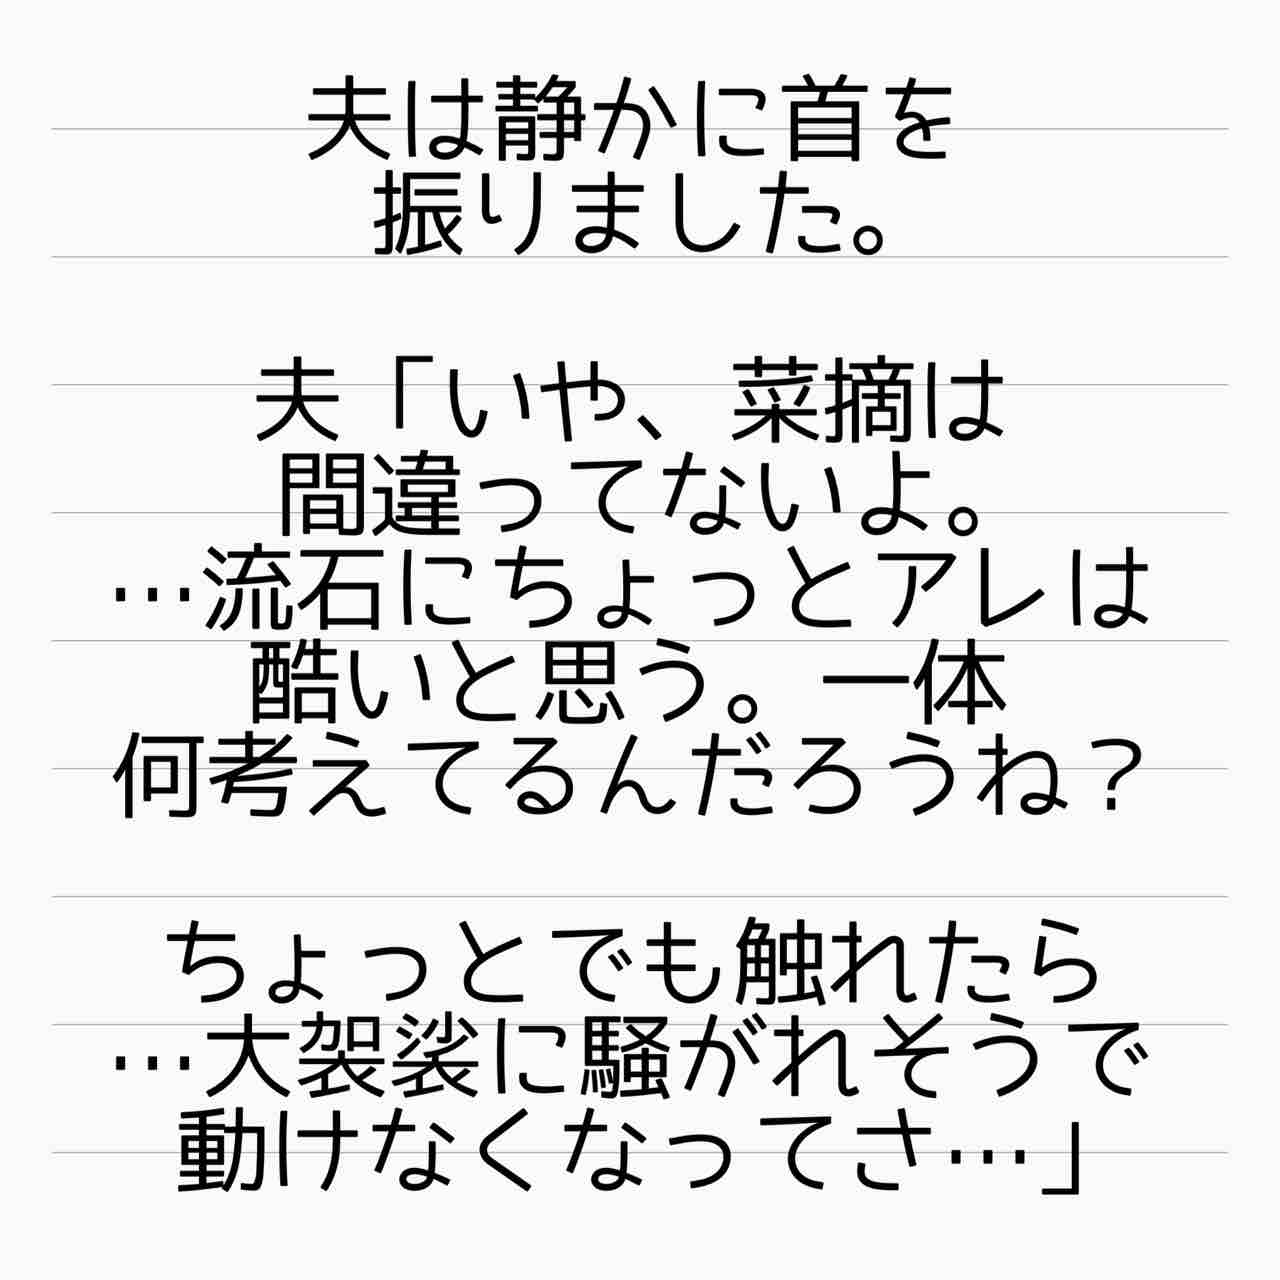 夫は静かに首を
振りました。
夫「いや、菜摘は
間違ってないよ。
…流石にちょっとアレは
酷いと思う。一体
何考えてるんだろうね？
ちょっとでも触れたら
…大袈裟に騒がれそうで
動けなくなってさ…」